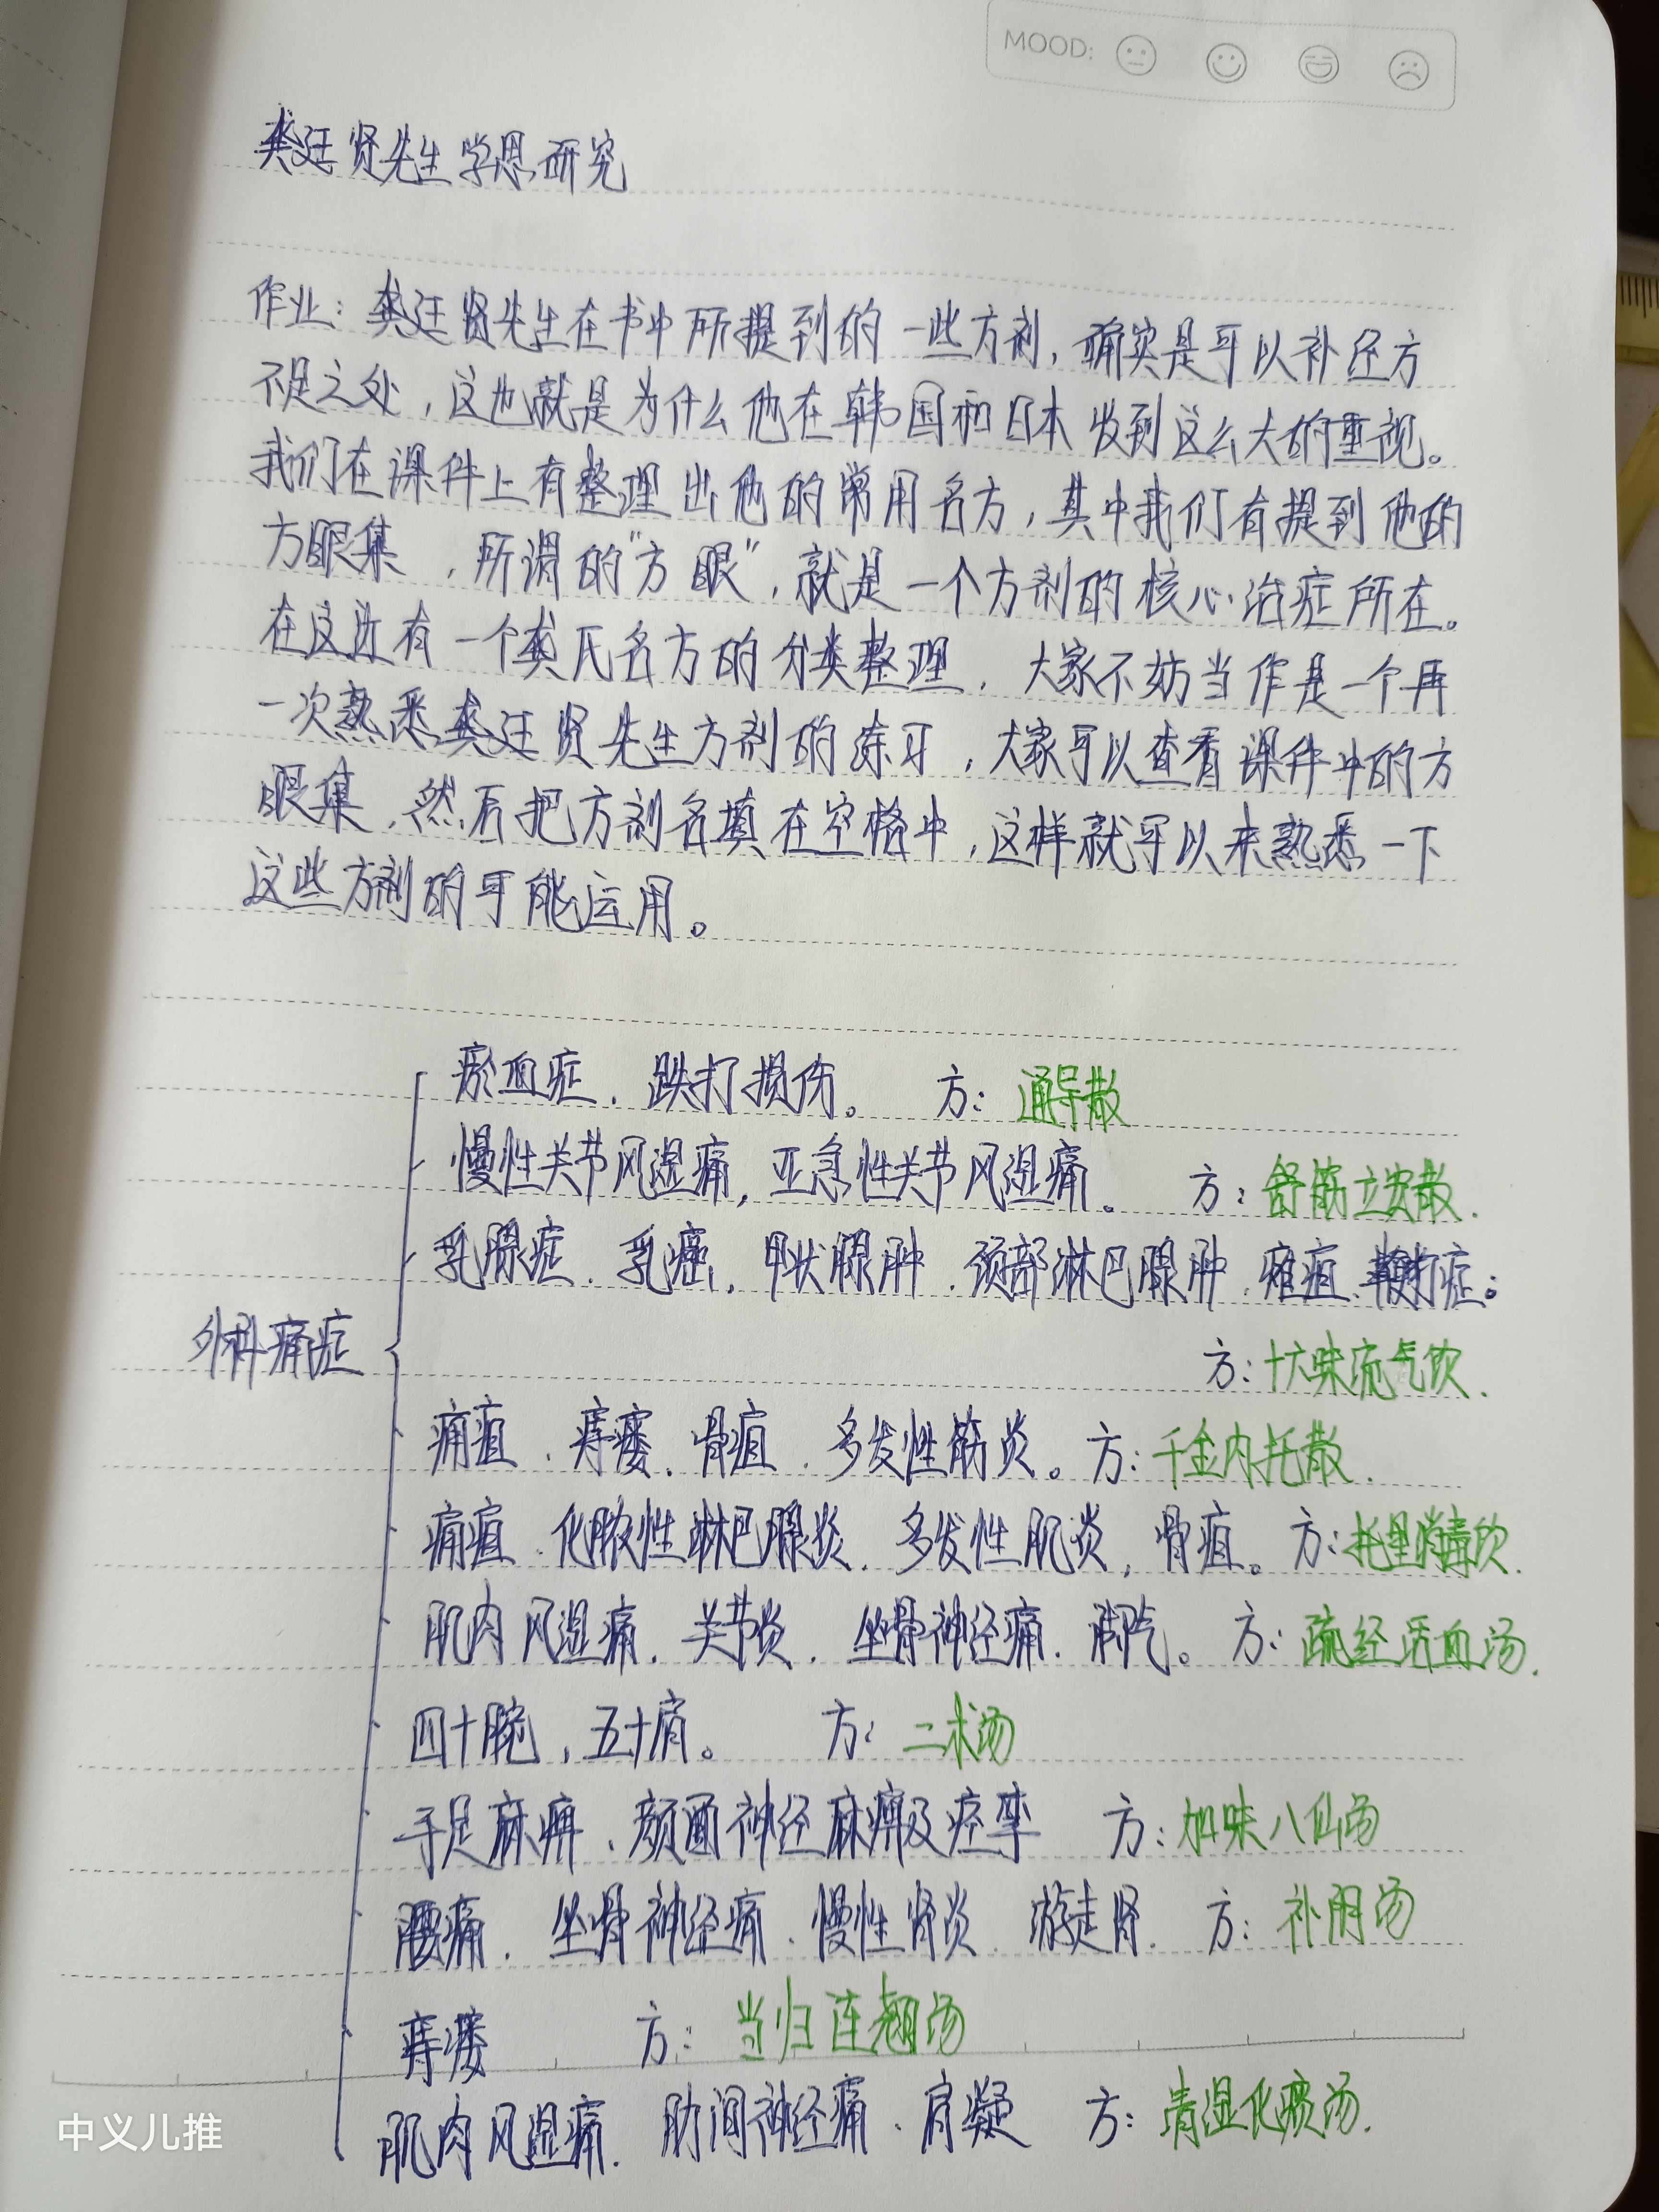 MOOD:
龚廷贤先生学思研究
作业：龚廷贤先生在书中所提到的一些方剂，确实是可以补经方
不足之处，这也就是为什么他在韩国和日本收到这么大的重视。
我们在课件上有整理出他的常用名方，其中我们有提到他的
方眼集，所谓的“方眼”，就是一个方剂的核心治症所在。
在这边有一个龚氏名方的分类整理，大家不妨当作是一个再
一次熟悉龚廷贤先生方剂的练习，大家可以查看课件中的方
眼集，然后把方剂名填在空格中，这样就可以来熟悉一下
这些方剂的可能运用。
瘀血症、跌打损伤。 方：通导散
慢性关节风湿痛，亚急性关节风湿痛。 方：舒筋立安散.
乳腺症、乳癌、甲状腺肿、颈部淋巴腺肿、痈疽、鞭打症。
外科痛症
方：十六味流气饮.
痈疽、痔瘘、骨疽、多发性筋炎。方：千金内托散.
痈疽、化脓性淋巴腺炎、多发性肌炎，骨疽。方：托里消毒饮.
肌肉风湿痛、关节炎、坐骨神经痛、脚气。方：疏经活血汤.
四十腕，五十肩。 方：二术汤
手足麻痹、颜面神经麻痹及痉挛 方：加味八仙汤
腰痛、坐骨神经痛、慢性肾炎、游走肾. 方：补阴汤
痔瘘 方：当归连翘汤
肌肉风湿痛. 肋间神经痛、肩凝 方：清湿化痰汤.
中义儿推